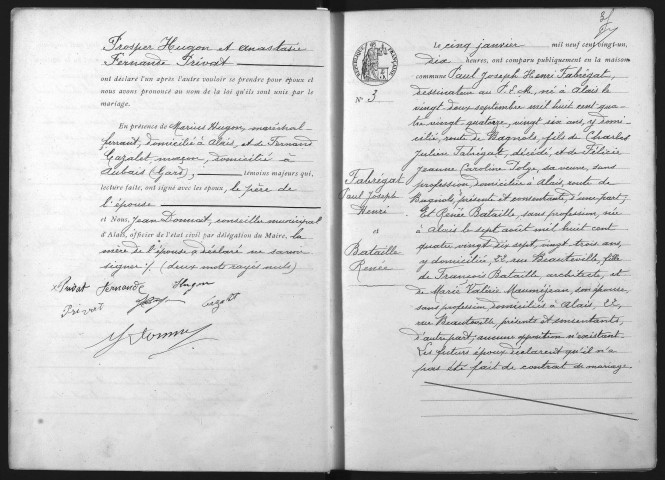 Prosper Hugon et Anastasie
Fernande Privat
ont déclaré l'un après l'autre vouloir se prendre pour époux et
nous avons prononcé au nom de la loi qu'ils sont unis par
le mariage.
En présence de Marius Hugon, maréchal-
ferrant, domicilié à Alais, et de Fernand
Cazalet maçon, domicilié à
Aubais (Gard), témoins majeurs qui,
lecture faite, ont signé avec les époux, le père de
l'épouse
et Nous, Jean Donnat, conseiller municipal
d'Alais, officier de l'état civil par délégation du Maire, la
mère de l'épouse a déclaré ne savoir
signer /. (deux mots rayés nuls)
Privat Fernande Hugon
Privat Cazalet
Donnat
N° 3
Fabrégat
Paul Joseph
Henri
et
Bataille
Renée
RÉPUBLIQUE FRANÇAISE
Le cinq janvier mil neuf cent vingt-un,
dix heures, ont comparu publiquement en la maison
commune Paul Joseph Henri Fabrégat,
dessinateur au P.L.M., né à Alais le
vingt deux septembre mil huit cent qua-
tre vingt quatorze, vingt six ans, y domi-
cilié, route de Bagnols, fils de Charles
Julien Fabrégat, décédé, et de Félicie
Jeanne Caroline Polge, sa veuve, sans
profession, domiciliée à Alais, route de
Bagnols, présente et consentante, d'une part;
Et Renée Bataille, sans profession, née
à Alais le sept août mil huit cent
quatre vingt dix sept, vingt trois ans,
y domiciliée, 22, rue Beauteville, fille
de François Bataille architecte, et
de Marie Valérie Mauméjean, son épouse,
sans profession, domiciliés à Alais, 22,
rue Beauteville, présents et consentants,
d'autre part; aucune opposition n'existant.
Les futurs époux déclarent qu'il n'a
pas été fait de contrat de mariage.